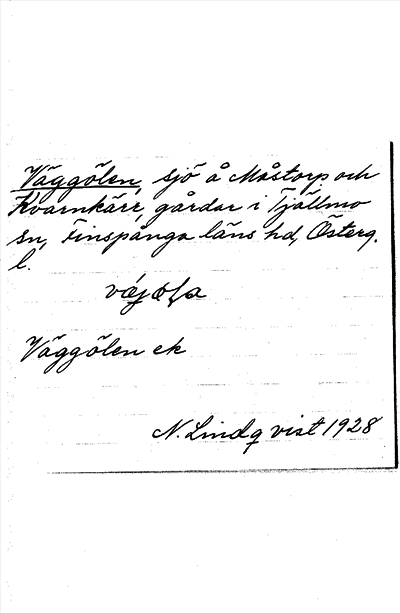 Väggölen, sjö å Måstorp och
Kvarnkärr, gårdar i Tjällmo
sn, Finspånga läns hd, Österg.
l.
Väggölen ek
N. Lindqvist 1928